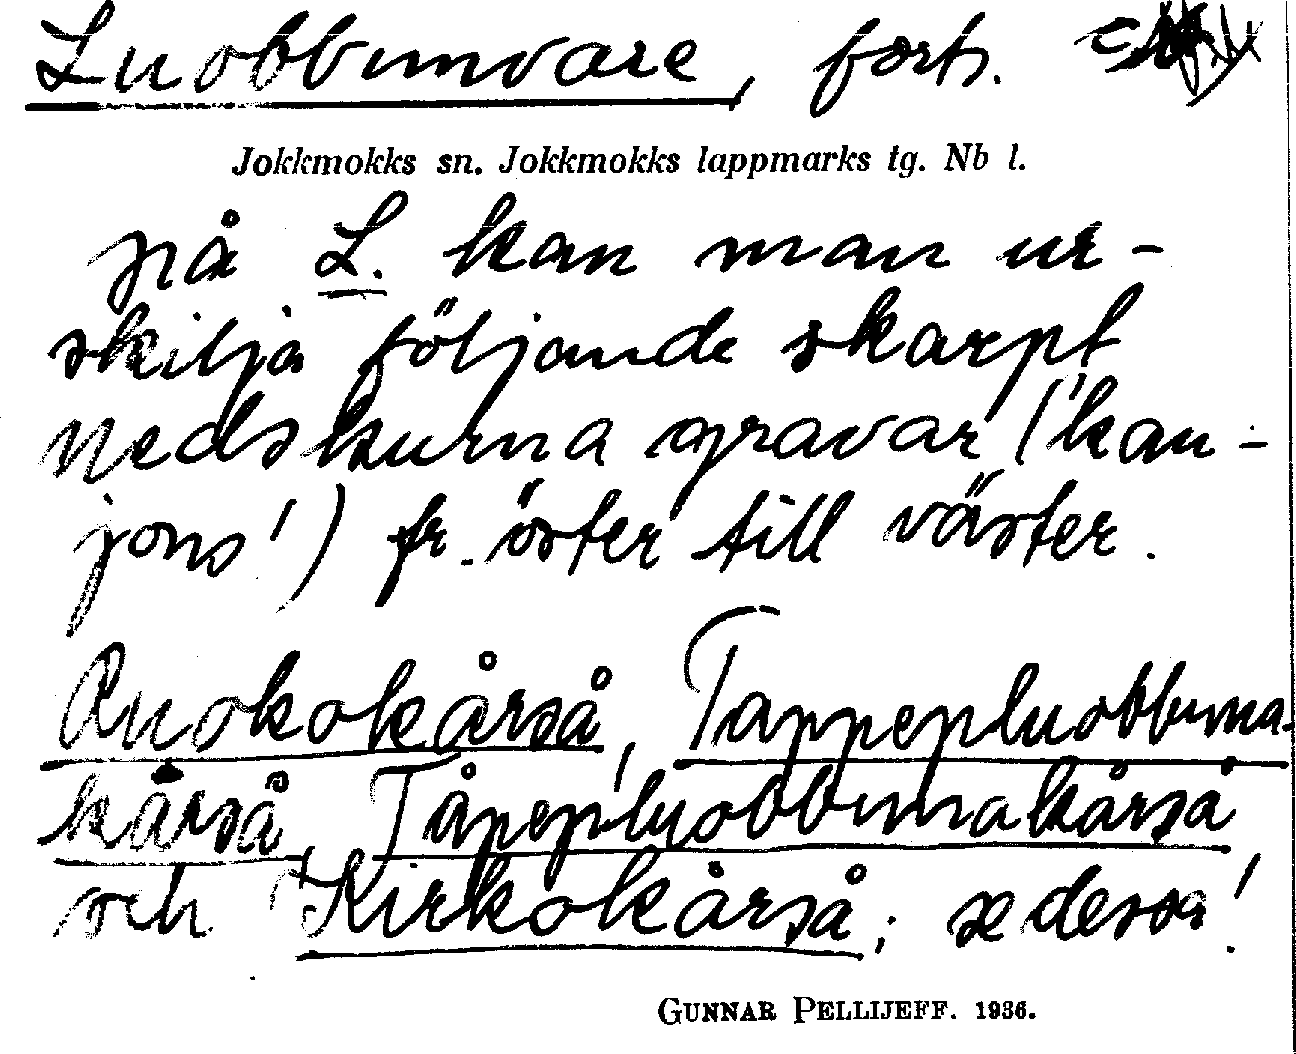 Luobbumvare, forts.
Jokkmokks sn. Jokkmokks lappmarks tg. Nb l.
på L. kan man ur-
skilja följande skarpt
nedskurna gravar ('kan-
jons') fr. öster till väster.
Ruokokårså, Tappepluobbuma-
kårså, Tåpepluobbumakårså
och Kirkokårså; se dessa!
GUNNAR PELLIJEFF. 1936.